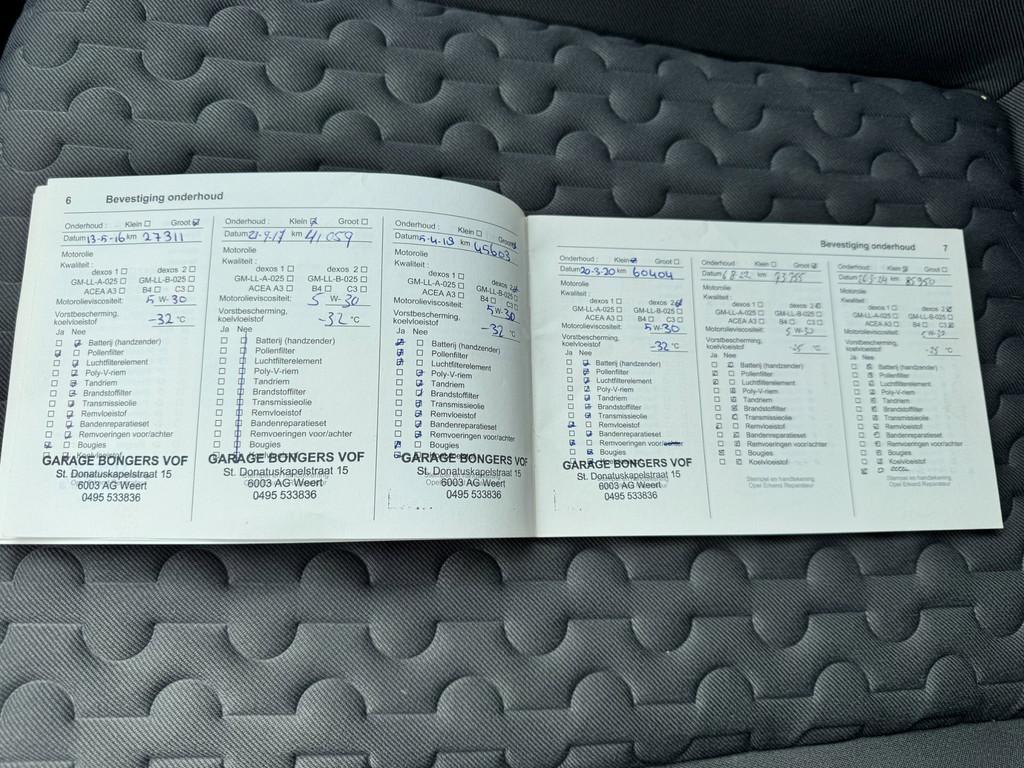 6 Bevestiging onderhoud
Onderhoud : Klein Groot
Datum 13-5-16 km 27311
Motorolie
Kwaliteit :
dexos 1 dexos 2
GM-LL-A-025 GM-LL-B-025
ACEA A3 B4 C3
Motorolieviscositeit: 5 W-30
Vorstbescherming,
koelvloeistof -32 °C
Ja Nee
Batterij (handzender)
Pollenfilter
Luchtfilterelement
Poly-V-riem
Tandriem
Brandstoffilter
Transmissieolie
Remvloeistof
Bandenreparatieset
Remvoeringen voor/achter
Bougies
GARAGE BONGERS VOF
St. Donatuskapelstraat 15
6003 AG Weert
0495 533836
Onderhoud : Klein Groot
Datum 21-9-17 km 41059
Motorolie
Kwaliteit :
dexos 1 dexos 2
GM-LL-A-025 GM-LL-B-025
ACEA A3 B4 C3
Motorolieviscositeit: 5 W-30
Vorstbescherming,
koelvloeistof -32 °C
Ja Nee
Batterij (handzender)
Pollenfilter
Luchtfilterelement
Poly-V-riem
Tandriem
Brandstoffilter
Transmissieolie
Remvloeistof
Bandenreparatieset
Remvoeringen voor/achter
Bougies
GARAGE BONGERS VOF
St. Donatuskapelstraat 15
6003 AG Weert
0495 533836
Onderhoud : Klein Groot
Datum km 45603
Motorolie
Kwaliteit :
dexos 1 dexos 2
GM-LL-A-025 GM-LL-B-025
ACEA A3 B4 C3
Motorolieviscositeit: 5 W-30
Vorstbescherming,
koelvloeistof -32 °C
Ja Nee
Batterij (handzender)
Pollenfilter
Luchtfilterelement
Poly-V-riem
Tandriem
Brandstoffilter
Transmissieolie
Remvloeistof
Bandenreparatieset
Remvoeringen voor/achter
Bougies
GARAGE BONGERS VOF
St. Donatuskapelstraat 15
6003 AG Weert
0495 533836
Bevestiging onderhoud 7
Onderhoud : Klein Groot
Datum 20-3-20 km 60404
Motorolie
Kwaliteit :
dexos 1 dexos 2
GM-LL-A-025 GM-LL-B-025
ACEA A3 B4 C3
Motorolieviscositeit: 5 W-30
Vorstbescherming,
koelvloeistof -32 °C
Ja Nee
Batterij (handzender)
Pollenfilter
Luchtfilterelement
Poly-V-riem
Tandriem
Brandstoffilter
Transmissieolie
Remvloeistof
Bandenreparatieset
Remvoeringen voor/achter
Bougies
GARAGE BONGERS VOF
St. Donatuskapelstraat 15
6003 AG Weert
0495 533836
Onderhoud : Klein Groot
Datum km 73755
Motorolie
Kwaliteit :
dexos 1 dexos 2
GM-LL-A-025 GM-LL-B-025
ACEA A3 B4 C3
Motorolieviscositeit: 5 W-30
Vorstbescherming,
koelvloeistof °C
Ja Nee
Batterij (handzender)
Pollenfilter
Luchtfilterelement
Poly-V-riem
Tandriem
Brandstoffilter
Transmissieolie
Remvloeistof
Bandenreparatieset
Remvoeringen voor/achter
Bougies
Koelvloeistof
Stempel en handtekening
Opel Erkend Reparateur
Onderhoud : Klein Groot
Datum km 85950
Motorolie
Kwaliteit :
dexos 1 dexos 2
GM-LL-A-025 GM-LL-B-025
ACEA A3 B4 C3
Motorolieviscositeit: 5 W-30
Vorstbescherming,
koelvloeistof °C
Ja Nee
Batterij (handzender)
Pollenfilter
Luchtfilterelement
Poly-V-riem
Tandriem
Brandstoffilter
Transmissieolie
Remvloeistof
Bandenreparatieset
Remvoeringen voor/achter
Bougies
Koelvloeistof
Stempel en handtekening
Opel Erkend Reparateur